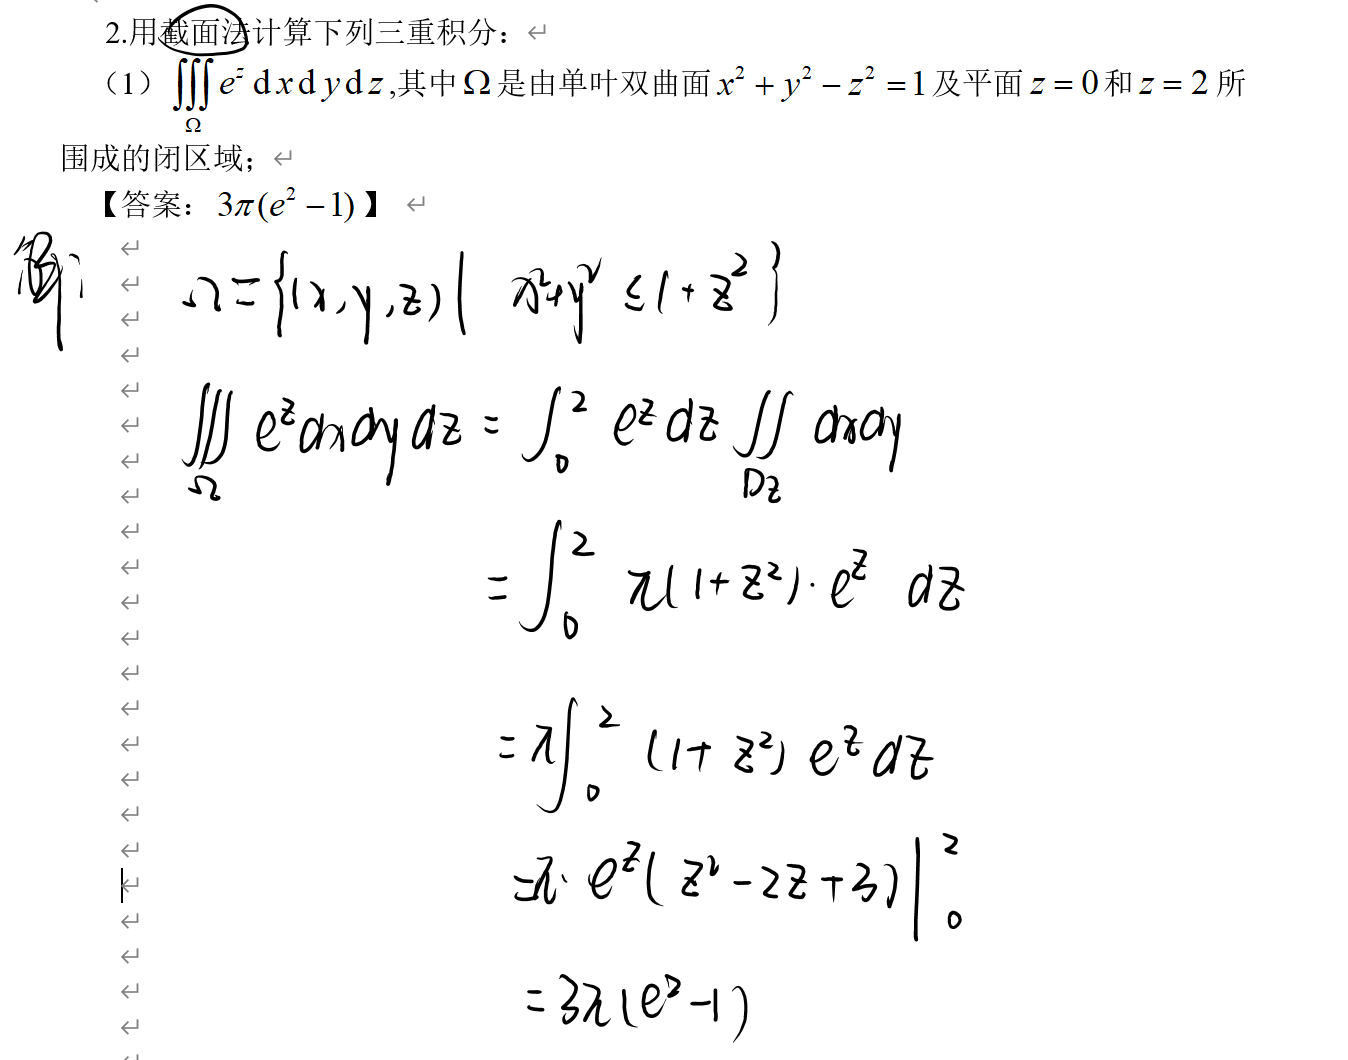 2.用截面法计算下列三重积分：
（1）∭_Ω e^z dxdydz,其中Ω是由单叶双曲面x²+y²−z²=1及平面z=0和z=2所
围成的闭区域；
【答案：3π(e²−1)】
解：
Ω={(x,y,z)| x²+y²≤1+z²}
∭_Ω e^z dxdydz = ∫_0^2 e^z dz ∬_{Dz} dxdy
= ∫_0^2 π(1+z²)·e^z dz
= π∫_0^2 (1+z²) e^z dz
= π·e^z(z²−2z+3)|_0^2
= 3π(e²−1)